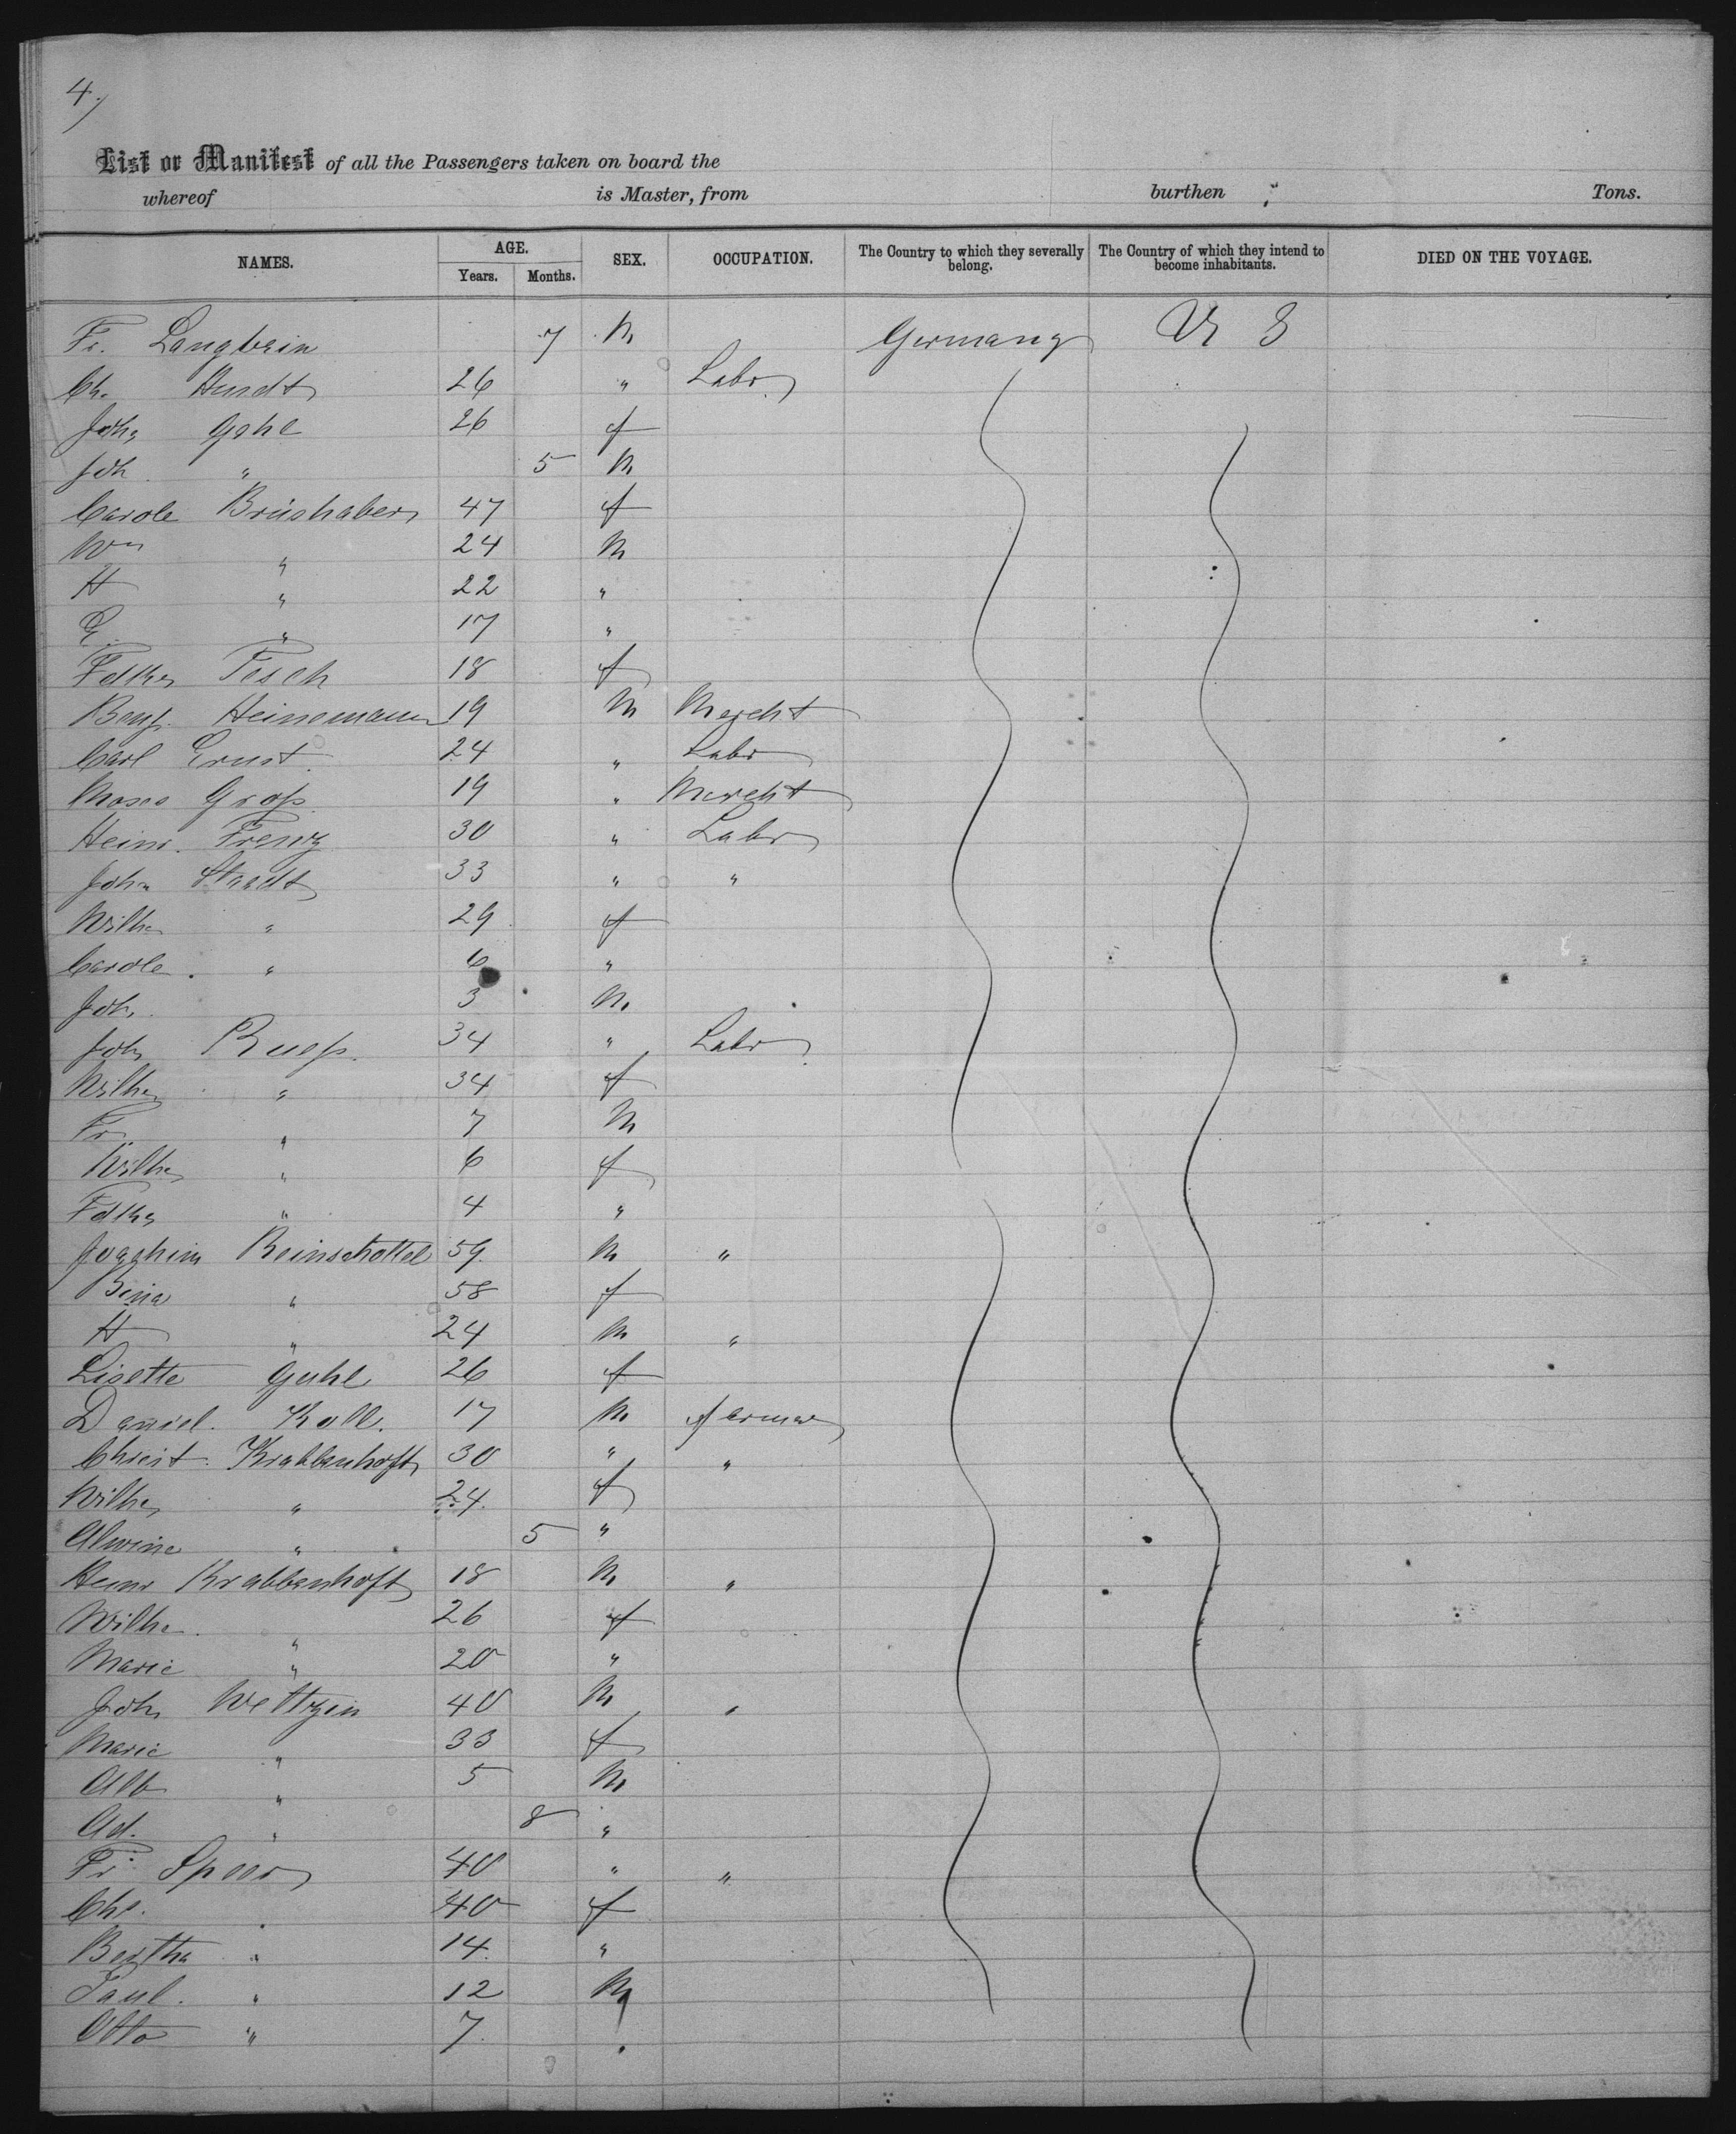 4.)
List or Manifest of all the Passengers taken on board the
whereof is Master, from burthen Tons.
NAMES. AGE. Years. Months. SEX. OCCUPATION. The Country to which they severally belong. The Country of which they intend to become inhabitants. DIED ON THE VOYAGE.
Fr. Langbein 7 M Germany U S
Ch. Hundt 26 " Labr
Joh. Gahl 26 f
Joh. " 5 M
Carole Brüshaber 47 f
Wm " 24 M
H " 22 "
E. " 17 "
Fdke Tesch 18 f
Benj. Heinemann 19 M Mercht
Carl Ernst 24 " Labr
Moses Groß 19 " Mercht
Heinr. Frenz 30 " Labr
John Staedt 33 " "
Wilhe " 29 f
Carole " 6 "
Joh. 3 M
Joh. Rueß 34 " Labr
Wilhe " 34 f
Fr. " 7 M
Wilhe " 6 f
Fdke " 4 "
Joachim Beinschottel 59 M "
Bina " 58 f
H " 24 M "
Lisette Guhl 26 f
Daniel Koll. 17 M farmer
Christ. Krabbenhoft 30 " "
Wilhe " 24 f
Alwine " 5 "
Heinr Krabbenhoft 18 M "
Wilhe " 26 f
Marie " 20 "
Joh. Weltzien 40 M "
Marie " 33 f
Alb " 5 M
Ad. " 8 "
Fr. Speer 40 " "
Chr. " 40 f
Bertha " 14 "
Paul " 12 M
Otto " 7 "